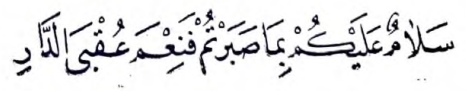 سَلَامٌ عَلَيْكُمْ بِمَا صَبَرْتُمْ فَنِعْمَ عُقْبَى الدَّارِ